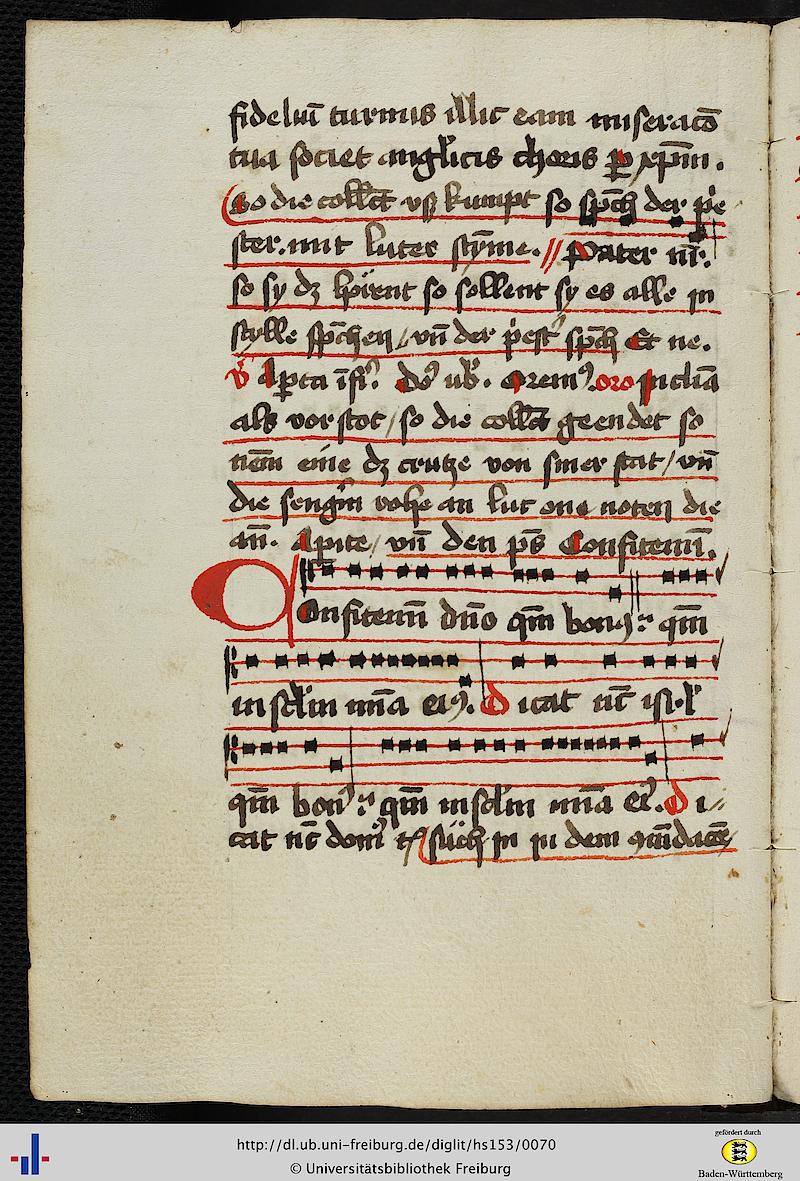 fideliū turmis illic eam miseracō
tua societ angl'icis choris p xpm̄.
So die coll'ct vs kumpt so sp̄ch der p'e
ster. mit luter stȳme. // Pater nr̄.
so sy dz hörent so söllent sy es alle in
stylle sp̄chen / vn̄ der p'est' sp̄ch Et ne.
A porta īfi'. Do' ub'. Orem'. oro Inclīa
als vor stot / so die coll'ct geendet so
nem̄ eine dz crutze von siner stat / vn̄
die sengin an lut one noten die
an̄. Aperite / vn̄ den ps̄ Confitemī.
Confitemī dn̄o qm̄ bon9 : qm̄
in scl'm mīa ei9. Dicat nc̄ isr'l
qm̄ bon9 : qm̄ in scl'm mīa ei'. Di-
cat nc̄ dom' süch in in dem
http://dl.ub.uni-freiburg.de/diglit/hs153/0070
© Universitätsbibliothek Freiburg
gefördert durch
Baden-Württemberg